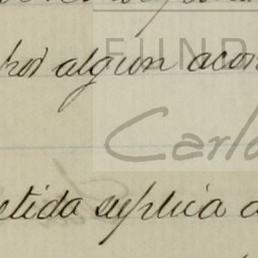 por algun acon
FUND
Carlo
etida suplica a